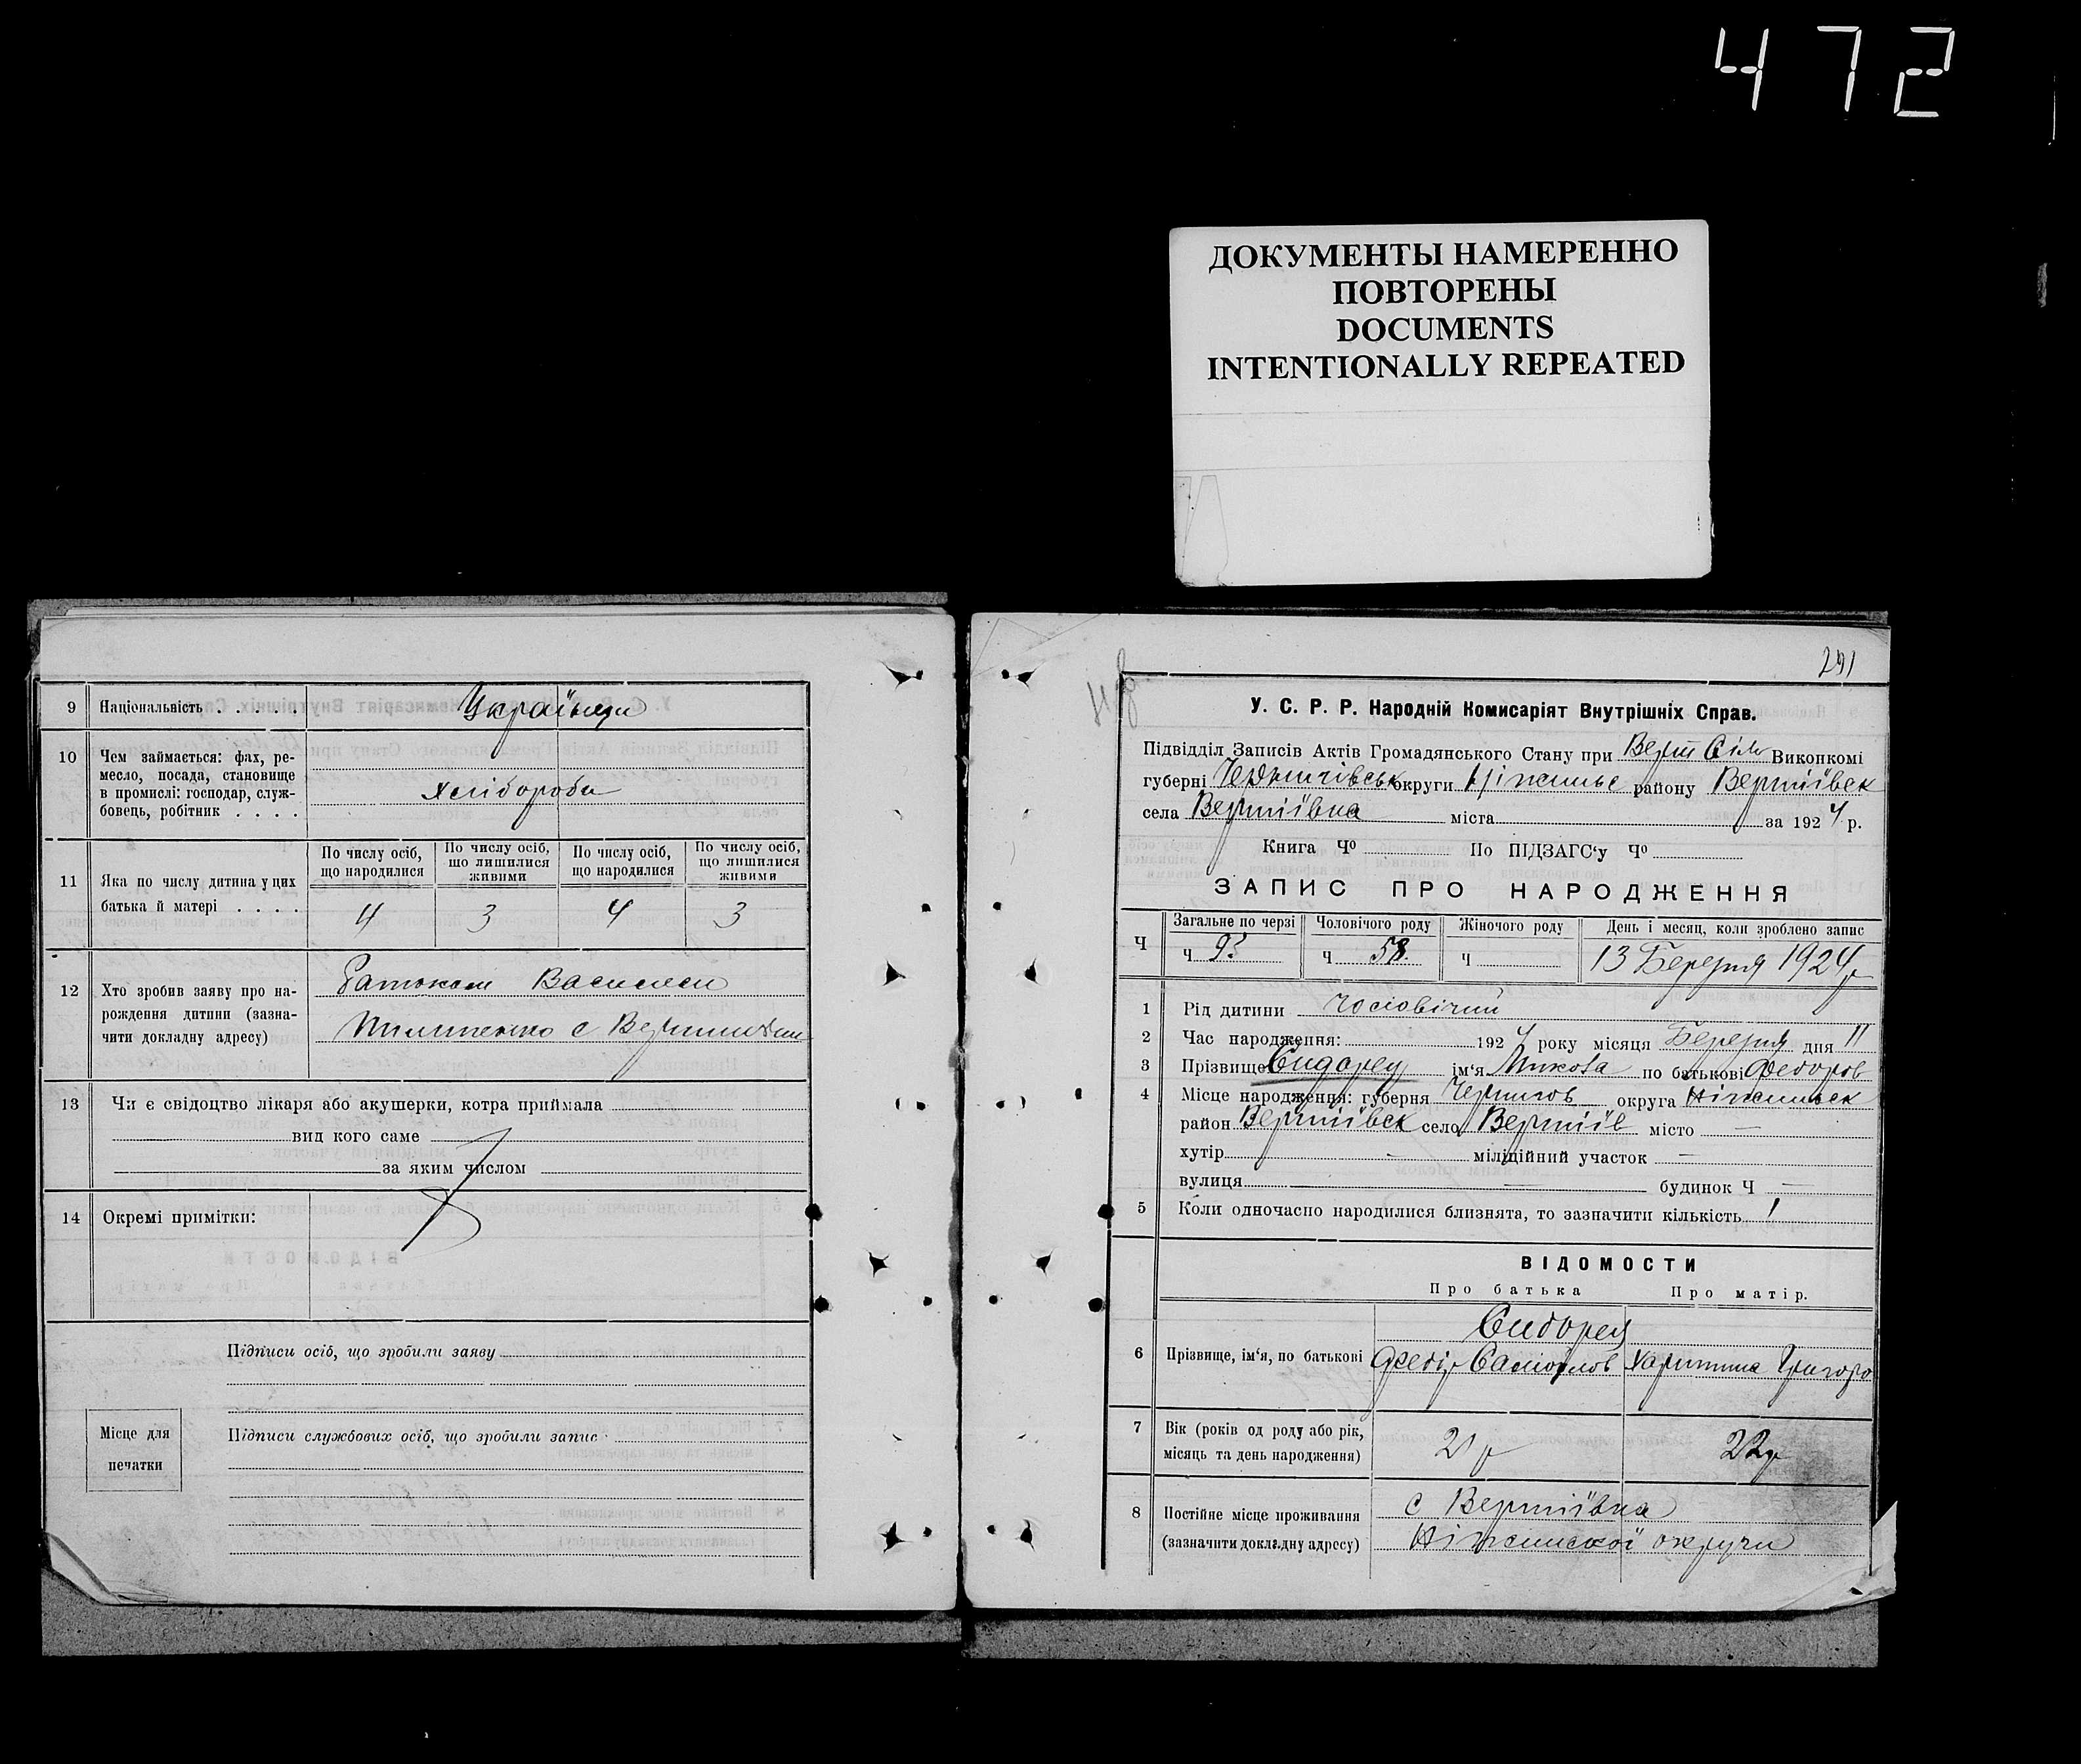 472
ДОКУМЕНТЫ НАМЕРЕННО
ПОВТОРЕНЫ
DOCUMENTS
INTENTIONALLY REPEATED
9 Національність . . . . . Українци
10 Чем займається: фах, ре-
месло, посада, становище
в промислі: господар, служ-
бовець, робітник . . . .
Хлібороби
11 Яка по числу дитина у цих
батька й матері . . . .
По числу осіб, що народилися
По числу осіб, що лишилися живими
По числу осіб, що народилися
По числу осіб, що лишилися живими
4 3 4 3
12 Хто зробив заяву про на-
рождення дитини (зазна-
чити докладну адресу)
Василем
с
13 Чи є свідоцтво лікаря або акушерки, котра приймала
вид кого саме
за яким числом
14 Окремі примітки:
Підписи осіб, що зробили заяву
Місце для
печатки
Підписи службових осіб, що зробили запис
291
У. С. Р. Р. Народній Комисаріят Внутрішніх Справ.
Підвідділ Записів Актів Громадянського Стану при Верт Сіль Виконкомі
губерні Чернигівськ округи Ніжинське району Вертіївск
села Вертіївка міста за 1924 р.
Книга Ч⁰ По ПІДЗАГС‘у Ч⁰
ЗАПИС ПРО НАРОДЖЕННЯ
Ч
Загальне по черзі Чоловічого роду Жіночого роду День і месяц, коли зроблено запис
Ч Ч 58. Ч 13 Березня 1924 р
1 Рід дитини чоловічий
2 Час народження: 1924 року місяця Березня дня 11
3 Прізвище Сидорец ім‘я Микола по батькові Федоров
4 Місце народження: губерня Чернигов округа Ніжинськ
район Вертіївск село Вертіїв місто —
хутір - міліційний участок —
вулиця — будинок Ч —
5 Коли одночасно народилися близнята, то зазначити кількість 1
ВІДОМОСТИ
Про батька Про матір.
Сидорец
6 Прізвище, ім‘я, по батькові Федір Самойлов Харитина Григоро
7 Вік (років од роду або рік,
місяць та день народження)
21 р 22 р
8 Постійне місце проживання
(зазначити докладну адресу)
с Вертіївка
Ніжинської округи